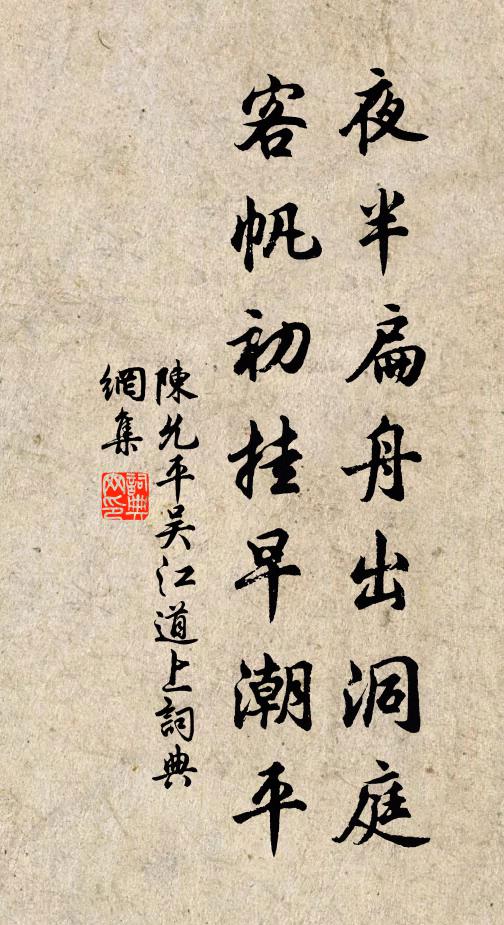 夜半扁舟出洞庭
客帆初挂早潮平
陳允平吴江道上詞典
網集
詞典網印